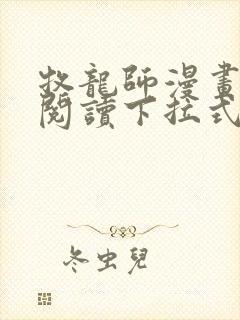 牧龍師漫畫
閱讀下拉式
冬虫兒